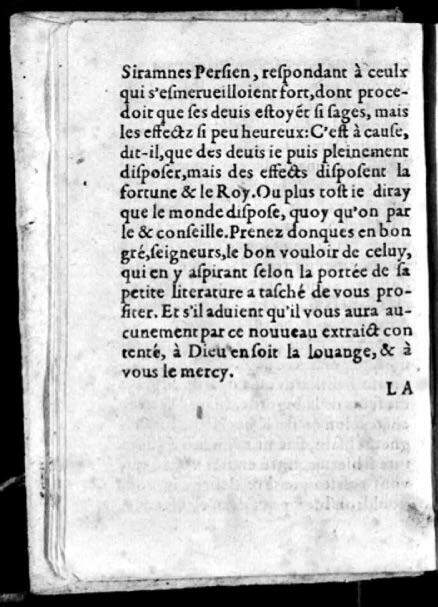 Siramnes Persien, respondant à ceulx
qui s'esmerueilloient fort,dont proce-
doit que ses deuis estoyẽt si sages, mais
les effectz si peu heureux:C'est à cause,
dit-il,que des deuis ie puis pleinement
disposer,mais des effects disposent la
fortune & le Roy.Ou plus tost ie diray
que le monde dispose, quoy qu'on par
le & conseille.Prenez donques en bon
gré,seigneurs,le bon vouloir de celuy,
qui en y aspirant selon la portée de sa
petite literature a tasché de vous pro-
fiter. Et s'il aduient qu'il vous aura au-
cunement par ce nouueau extraict con
tenté, à Dieu en soit la louange, & à
vous le mercy.
L A